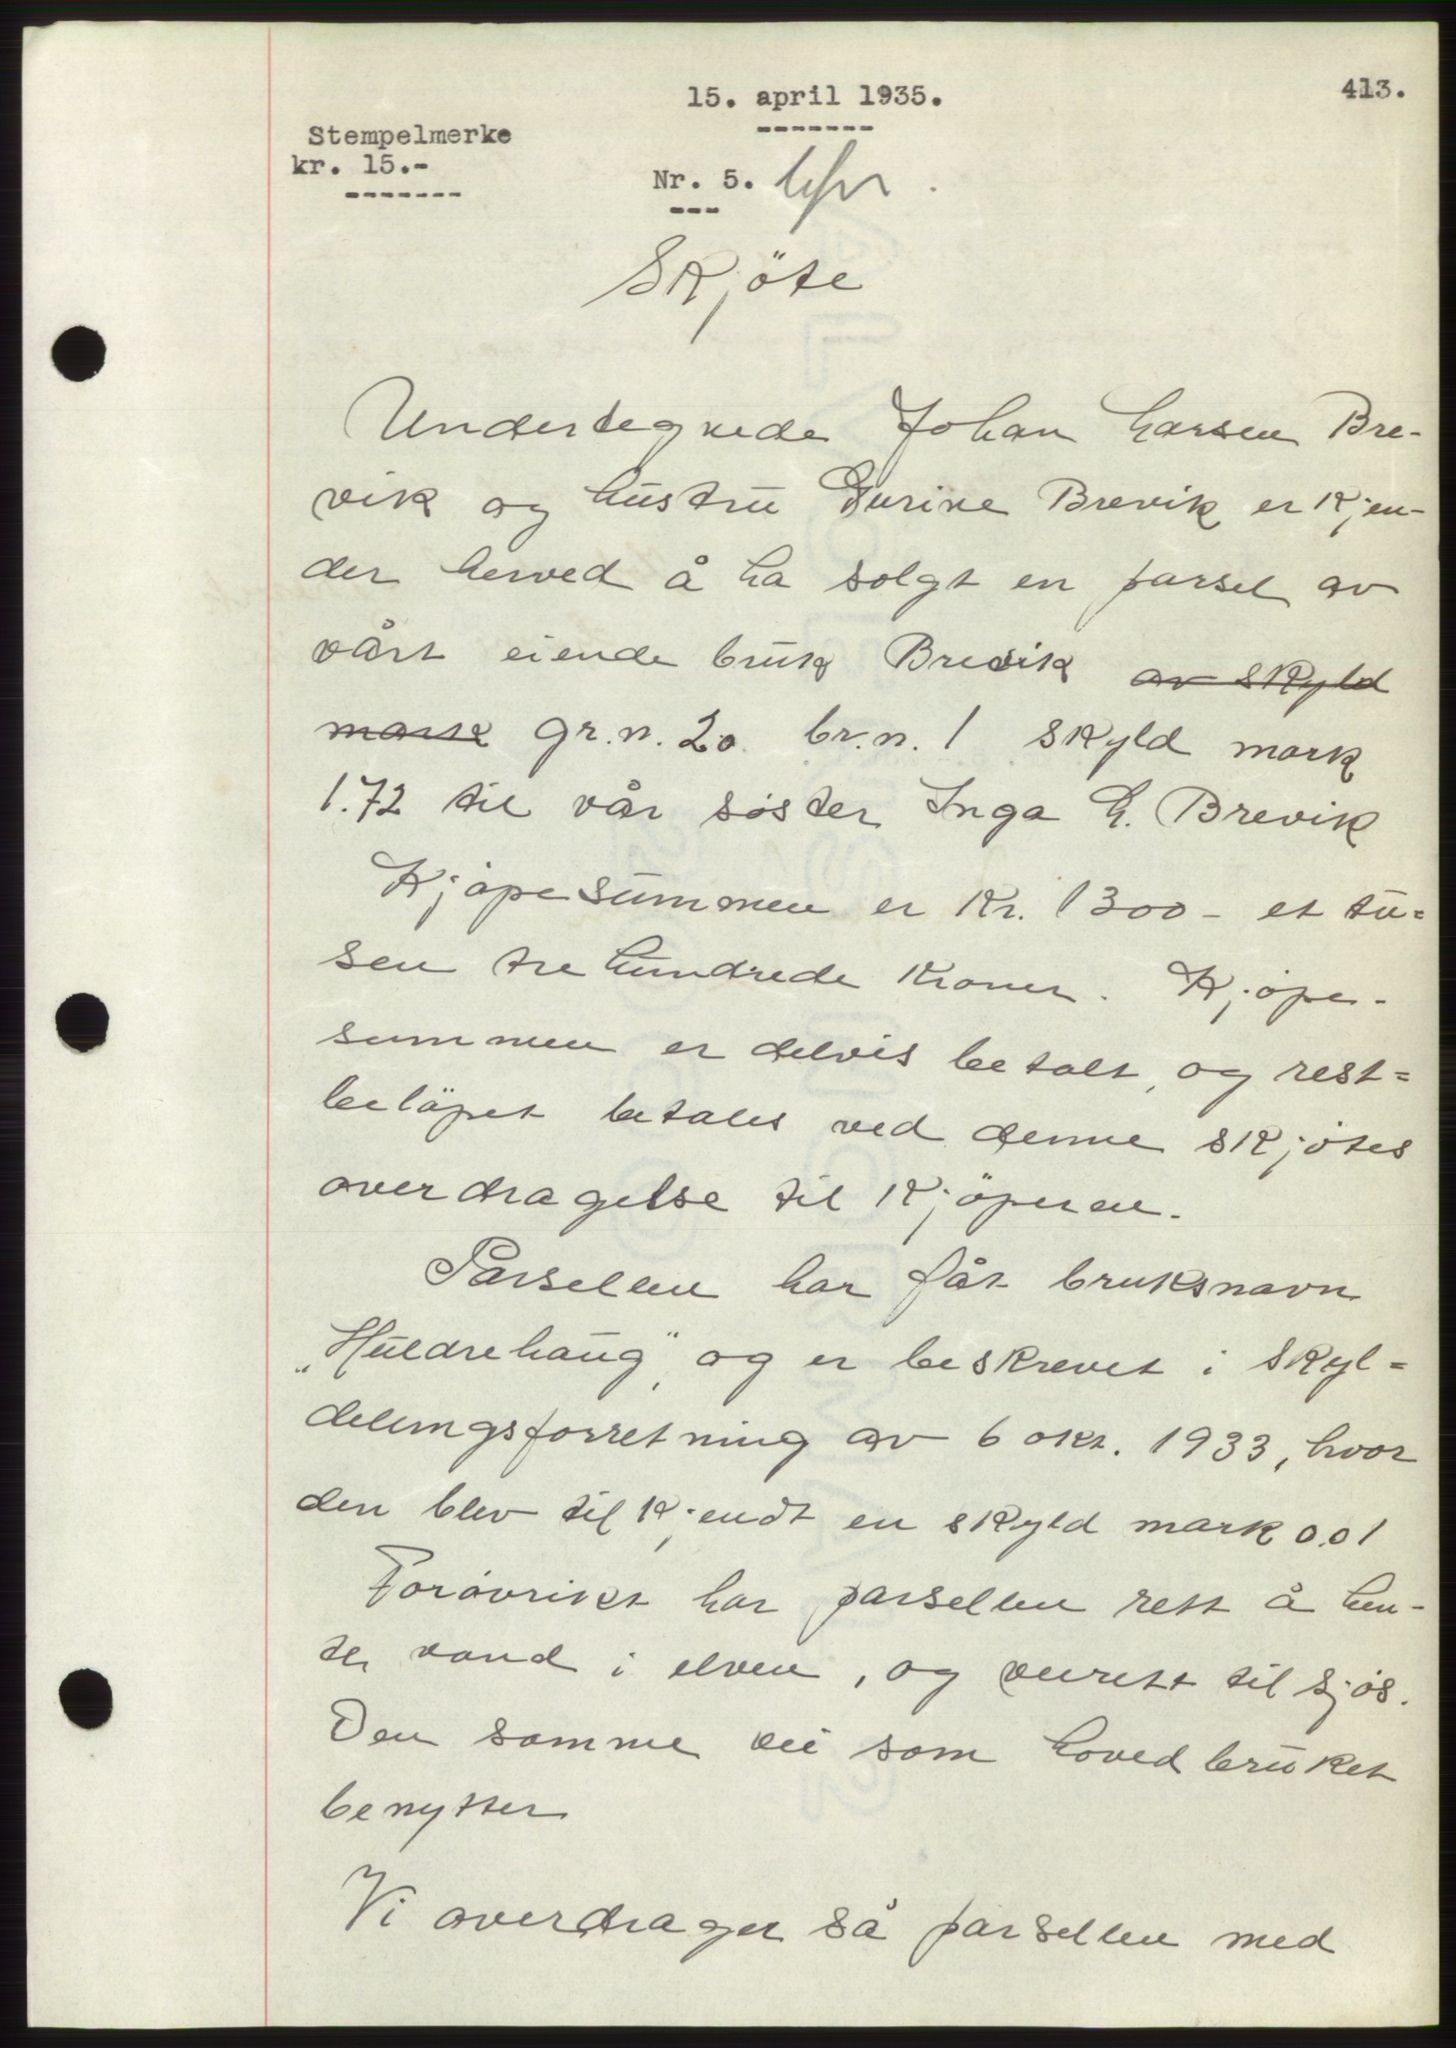 413.
15. april 1935.
-------
Stempelmerke
kr. 15.-
-------
Nr. 5.
---
Skjöte
Undertegnede Johan Larsen Bre-
vik og hustru Gurine Brevik er kjen-
der herved å ha solgt en parsel av
vårt eiende bruk Brevik av skyld
mark gr.n. 20. br.n. 1 skyld mark
1.72 til vår söster Inga L. Brevik
Kjöpesummen er Kr. 1300 - et tu=
sen tre hundrede kroner. Kjöpe-
summen er delvis betalt, og rest=
belöpet betales ved denne skjötes
overdragelse til kjöperen.
Parsellen har fåt bruksnavn
„Huldrehaug" og er beskrevet i skyl=
delingsforretning av 6 okt. 1933, hvor
den blev tilkjendt en skyld mark 0.01
Forövrikt har parsellen rett å hen-
te vand i elven, og veirett til sjös.
Den samme vei som hovedbruket
benytter
Vi overdrager så parsellen med